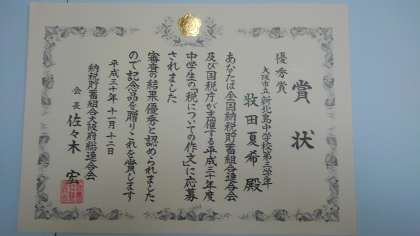 賞状
優秀賞
大阪市立新北島中学校第三学年
牧田夏希 殿
あなたは全国納税貯蓄組合連合会
及び国税庁が主催する平成三十年度
中学生の「税についての作文」に応募
されました
審査の結果優秀と認められました
ので記念品を贈りこれを賞します
平成三十年十一月十二日
納税貯蓄組合大阪府総連合会
会長 佐々木 宏